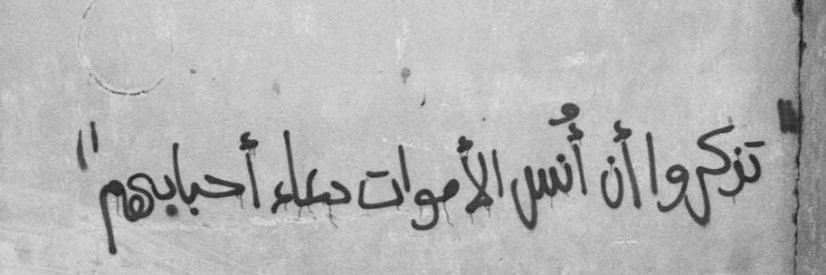 "تذكروا أن أُنس الأموات دعاء أحبابهم"